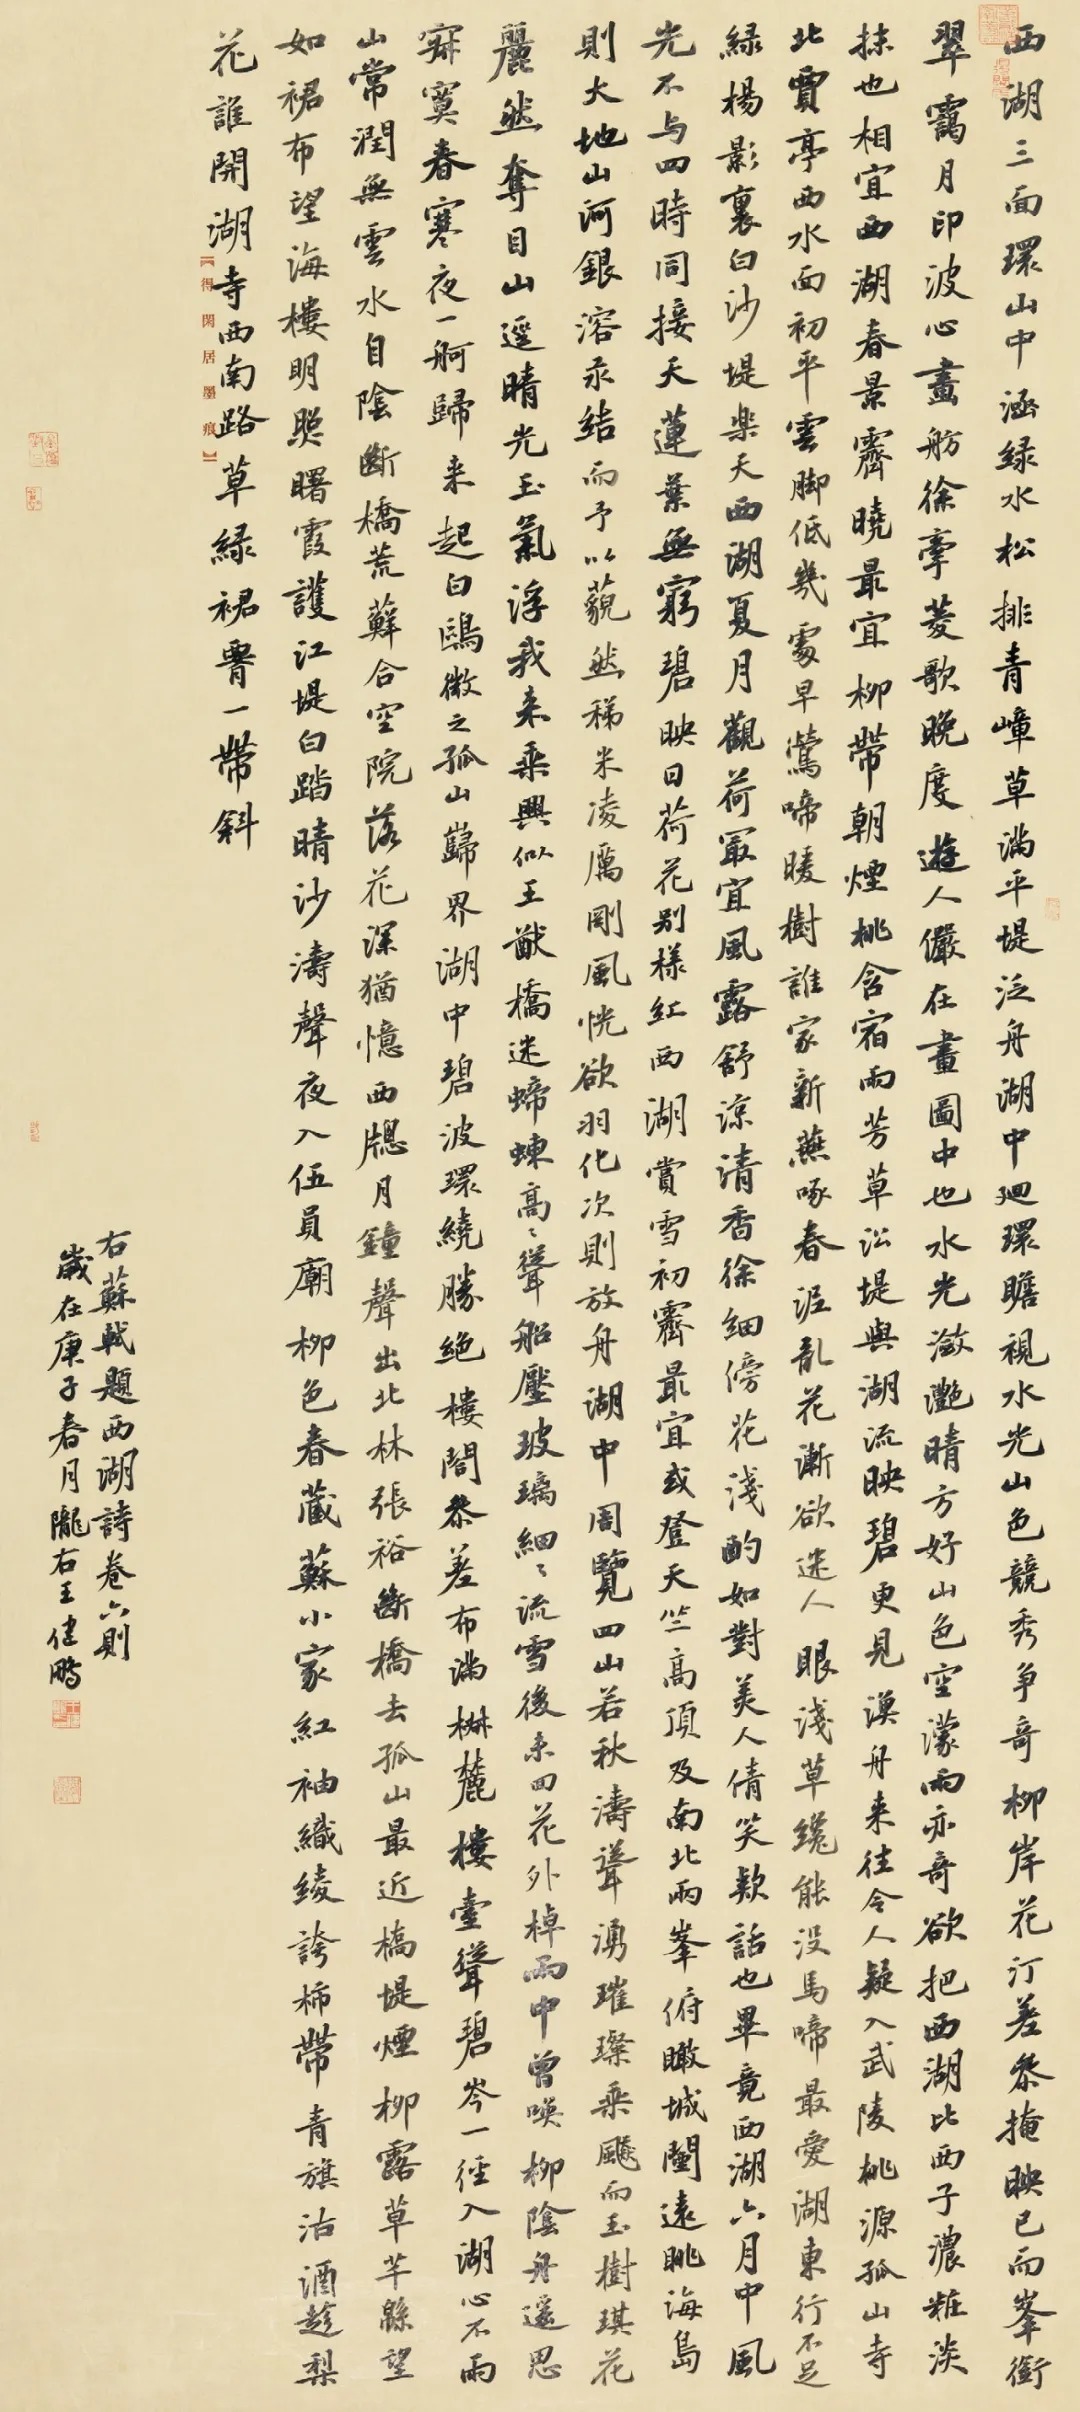 西湖三面環山中涵緑水松排青嶂草滿平堤泛舟湖中廻環瞻視水光山色競秀爭奇柳岸花汀差參掩映已而峯銜
翠靄月印波心畫舫徐牽菱歌晚度遊人儼在畫圖中也水光瀲灔晴方好山色空濛雨亦奇欲把西湖比西子濃粧淡
抹也相宜西湖春景霽曉最宜柳帶朝煙桃含宿雨芳草沿堤與湖流映碧更見漁舟来往令人疑入武陵桃源孤山寺
北賈亭西水面初平雲脚低幾處早鶯啼暖樹誰家新燕啄春泥亂花漸欲迷人眼淺草纔能没馬啼最愛湖東行不足
緑楊影裏白沙堤樂天西湖夏月觀荷最宜風露舒涼清香徐細傍花淺酌如對美人倩笑欵話也畢竟西湖六月中風
光不与四時同接天蓮葉無窮碧映日荷花別樣紅西湖賞雪初霽最宜或登天竺高頂及南北兩峯俯瞰城闉遠眺海島
則大地山河銀溶汞結而予以藐然稊米凌厲剛風恍欲羽化次則放舟湖中周覽四山若秋濤聳湧璀璨乘飈而玉樹琪花
麗然奪目山逕晴光玉氣浮我来乘興似王猷橋迷螮蝀高〻聳船壓玻璃細〻流雪後未回花外棹雨中曾喚柳陰舟遥思
寂寞春寒夜一舸歸来起白鷗微之孤山巋界湖中碧波環繞勝絶樓閣參差布滿椒麓樓臺聳碧岑一徑入湖心不雨
山常潤無雲水自陰斷橋荒蘚合空院落花深猶憶西牕月鐘聲出北林張祐斷橋去孤山最近橋堤煙柳露草芊緜望
如裙布望海樓明照曙霞護江堤白踏晴沙濤聲夜入伍員廟柳色春藏蘇小家紅袖織綾誇柿帶青旗沽酒趁梨
花誰開湖寺西南路草緑裙腰一帶斜
【得閑居墨痕】
右蘇軾題西湖詩卷六則
歲在庚子春月隴右王健鵬